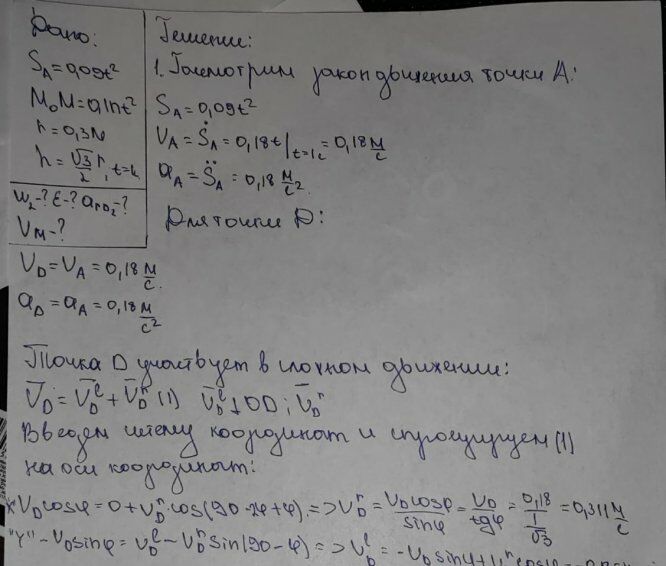 Дано:
S_A = 0,09t²
M₀M = 0,1πt²
r = 0,3м
h = √3/2 r, t=1c
ω₂-? ε-? a_пD₂-?
V_M-?
Решение:
1. Посмотрим закон движения точки A:
S_A = 0,09t²
V_A = Ṡ_A = 0,18t/t=1c = 0,18 м/с
a_A = S̈_A = 0,18 м/с².
Для точки D:
V_D = V_A = 0,18 м/с.
a_D = a_A = 0,18 м/с²
Точка D участвует в сложном движении:
V̄_D = V̄_D^e + V̄_D^r (1) V̄_D^e ⊥ OD; V̄_D^r
Введем систему координат и спроецируем (1)
на оси координат:
V_D cosφ = 0 + V_D^r · cos(90-2φ+φ) => V_D^r = V_D cosφ/sinφ = V_D/tgφ = 0,18/(1/√3) = 0,311 м/с
"y" -V_D sinφ = V_D^e - V_D^r sin(90-φ) => V_D^e = -V_D sinφ + V_D^r cosφ =